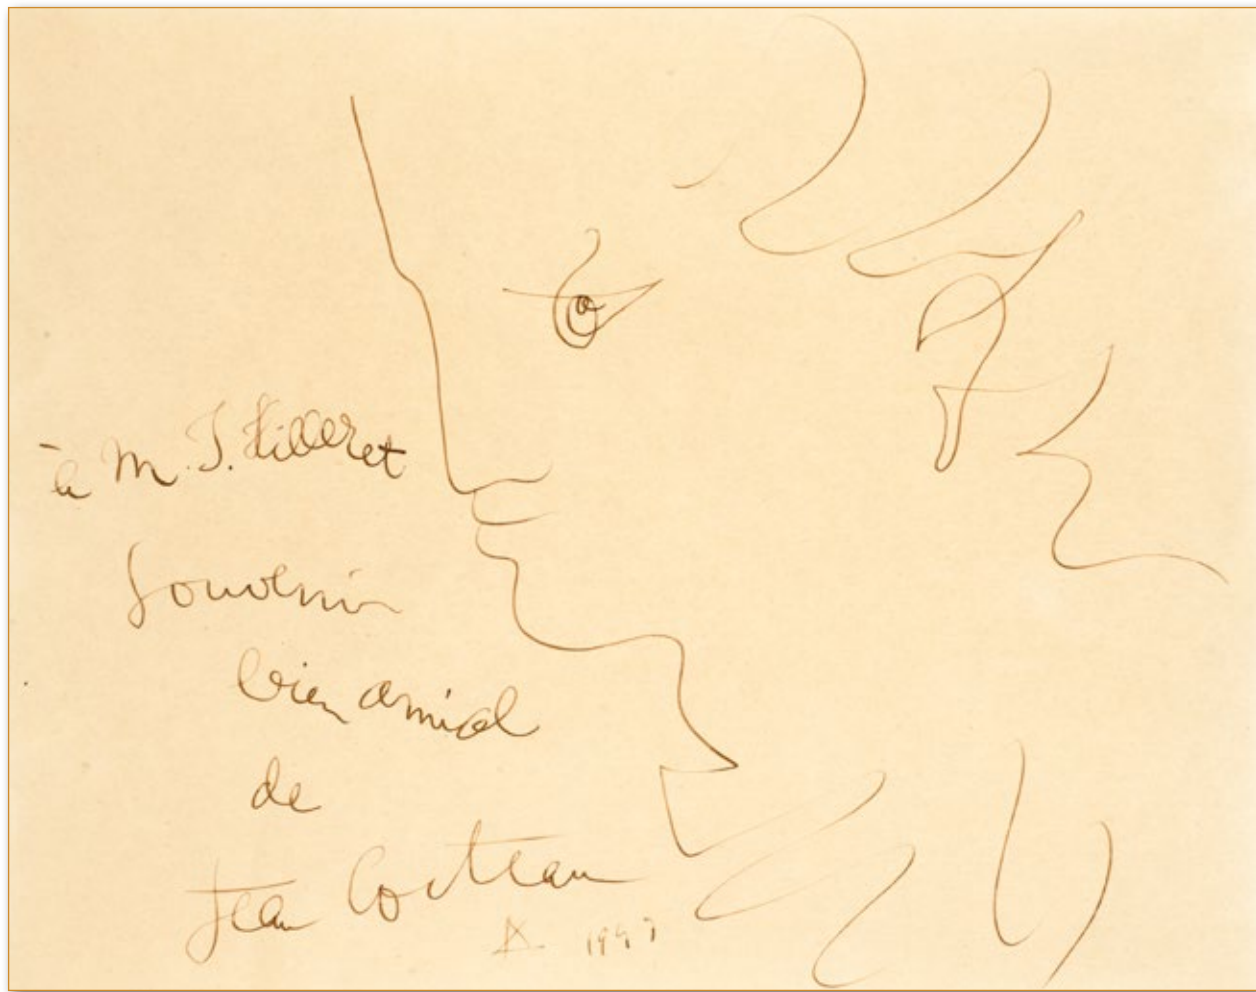 à M. J. Hilleret
Souvenir
bien amical
de
Jean Cocteau